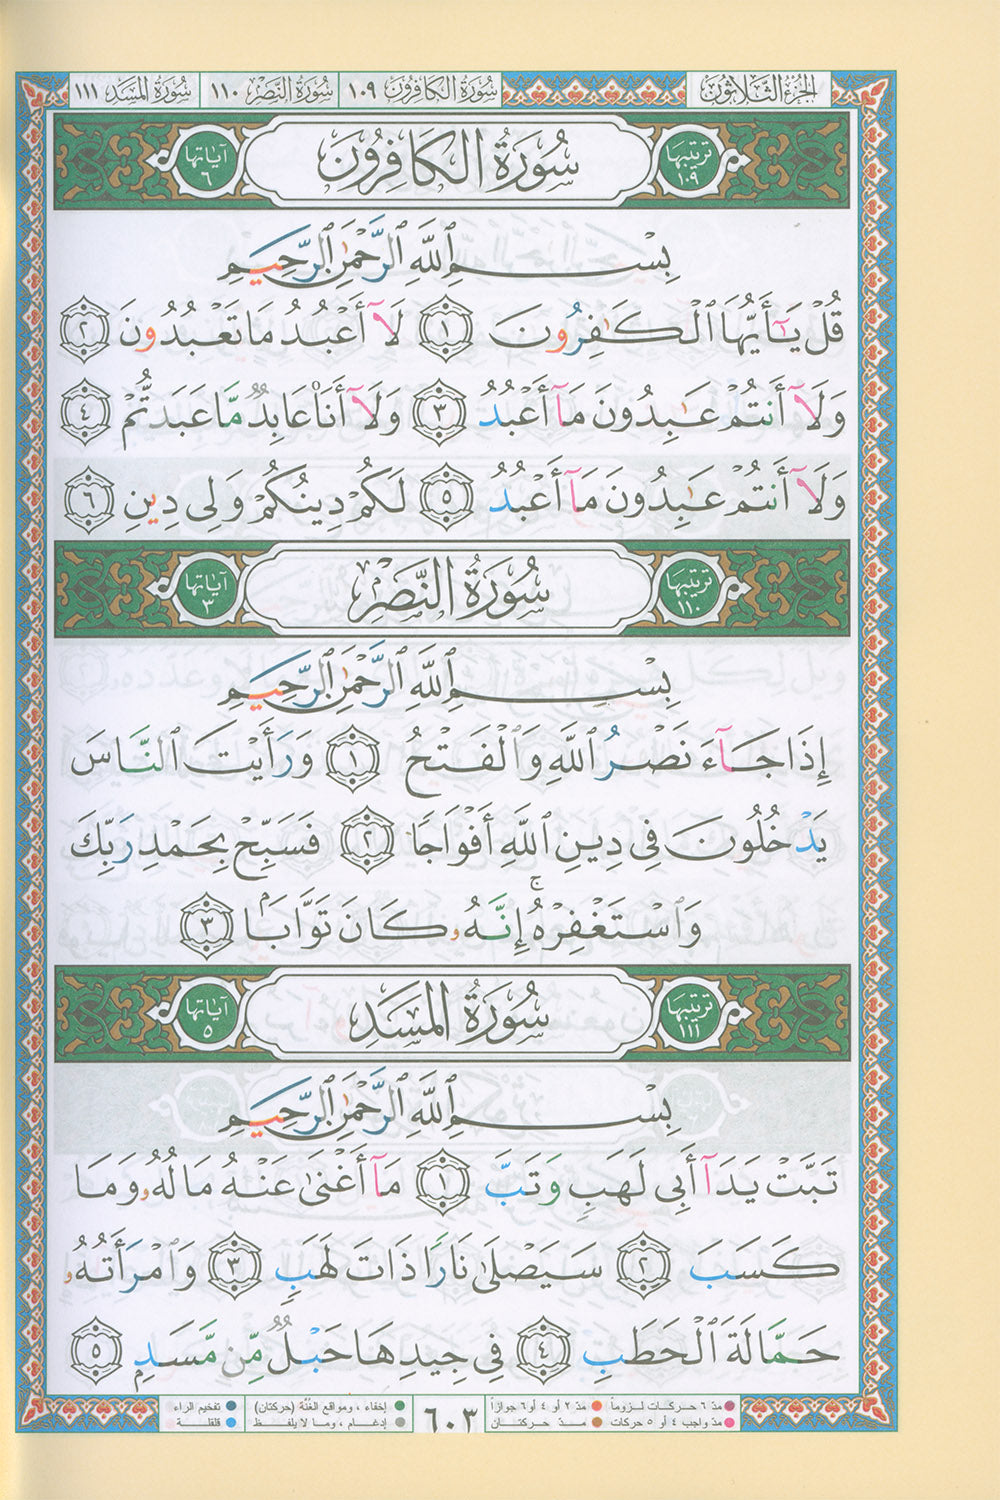 الجزء الثلاثون سورة الكافرون ١٠٩ سورة النصر ١١٠ سورة المسد ١١١
ترتيبها ١٠٩ سورة الكافرون آياتها ٦
بِسْمِ ٱللَّهِ ٱلرَّحْمَٰنِ ٱلرَّحِيمِ
قُلْ يَٰٓأَيُّهَا ٱلْكَٰفِرُونَ ١ لَآ أَعْبُدُ مَا تَعْبُدُونَ ٢
وَلَآ أَنتُمْ عَٰبِدُونَ مَآ أَعْبُدُ ٣ وَلَآ أَنَا۠ عَابِدٌ مَّا عَبَدتُّمْ ٤
وَلَآ أَنتُمْ عَٰبِدُونَ مَآ أَعْبُدُ ٥ لَكُمْ دِينُكُمْ وَلِىَ دِينِ ٦
ترتيبها ١١٠ سورة النصر آياتها ٣
بِسْمِ ٱللَّهِ ٱلرَّحْمَٰنِ ٱلرَّحِيمِ
إِذَا جَآءَ نَصْرُ ٱللَّهِ وَٱلْفَتْحُ ١ وَرَأَيْتَ ٱلنَّاسَ
يَدْخُلُونَ فِى دِينِ ٱللَّهِ أَفْوَاجًا ٢ فَسَبِّحْ بِحَمْدِ رَبِّكَ
وَٱسْتَغْفِرْهُ ۚ إِنَّهُۥ كَانَ تَوَّابًۢا ٣
ترتيبها ١١١ سورة المسد آياتها ٥
بِسْمِ ٱللَّهِ ٱلرَّحْمَٰنِ ٱلرَّحِيمِ
تَبَّتْ يَدَآ أَبِى لَهَبٍ وَتَبَّ ١ مَآ أَغْنَىٰ عَنْهُ مَالُهُۥ وَمَا
كَسَبَ ٢ سَيَصْلَىٰ نَارًا ذَاتَ لَهَبٍ ٣ وَٱمْرَأَتُهُۥ
حَمَّالَةَ ٱلْحَطَبِ ٤ فِى جِيدِهَا حَبْلٌ مِّن مَّسَدٍۭ ٥
مدّ ٦ حركات لزوماً مدّ ٢ أو ٤ أو ٦ جوازاً ٦٠٣ إخفاء ، ومواقع الغُنَّة (حركتان) تفخيم الراء
مدّ واجب ٤ أو ٥ حركات مدّ حركتان إدغام ، وما لا يلفظ قلقلة